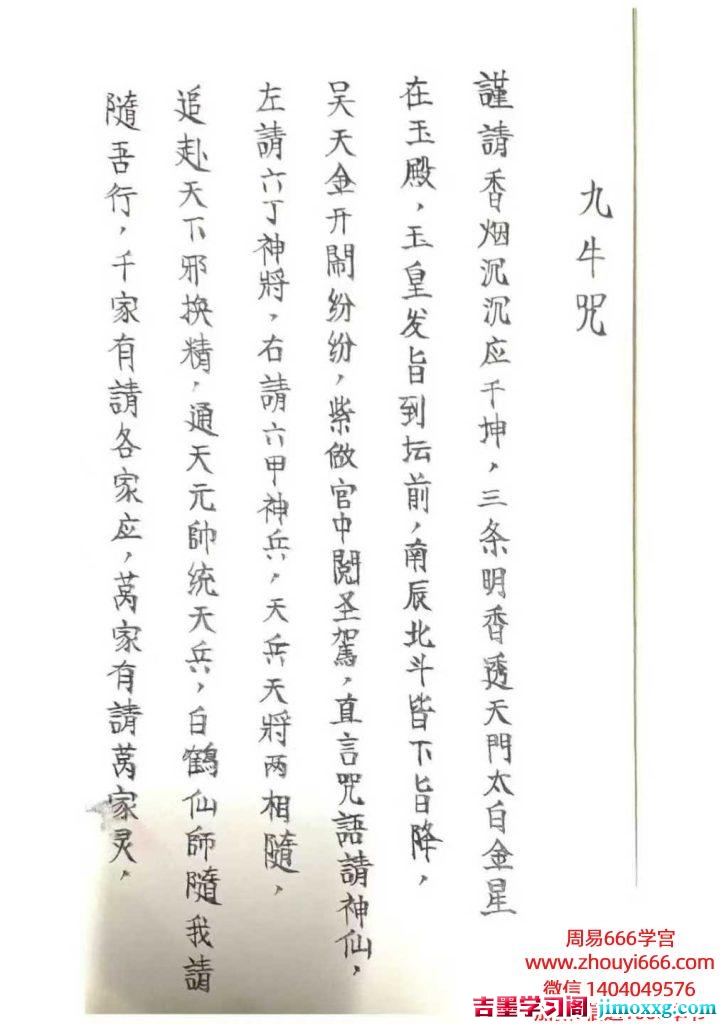 九牛咒
謹請香烟沉沉应干坤，三条明香透天門太白金星
在玉殿，玉皇发旨到坛前，南辰北斗皆下旨降，
吴天金开鬧纷纷，紫做官中閱圣駕，直言咒語請神仙，
左請六丁神將，右請六甲神兵，天兵天將两相隨，
追赴天下邪换精，通天元帥统天兵，白鶴仙師隨我請
隨吾行，千家有請各家应，萬家有請萬家灵，
周易666学宫
www.zhouyi666.com
微信 1404049576
吉墨学习阁 jimoxxg.com